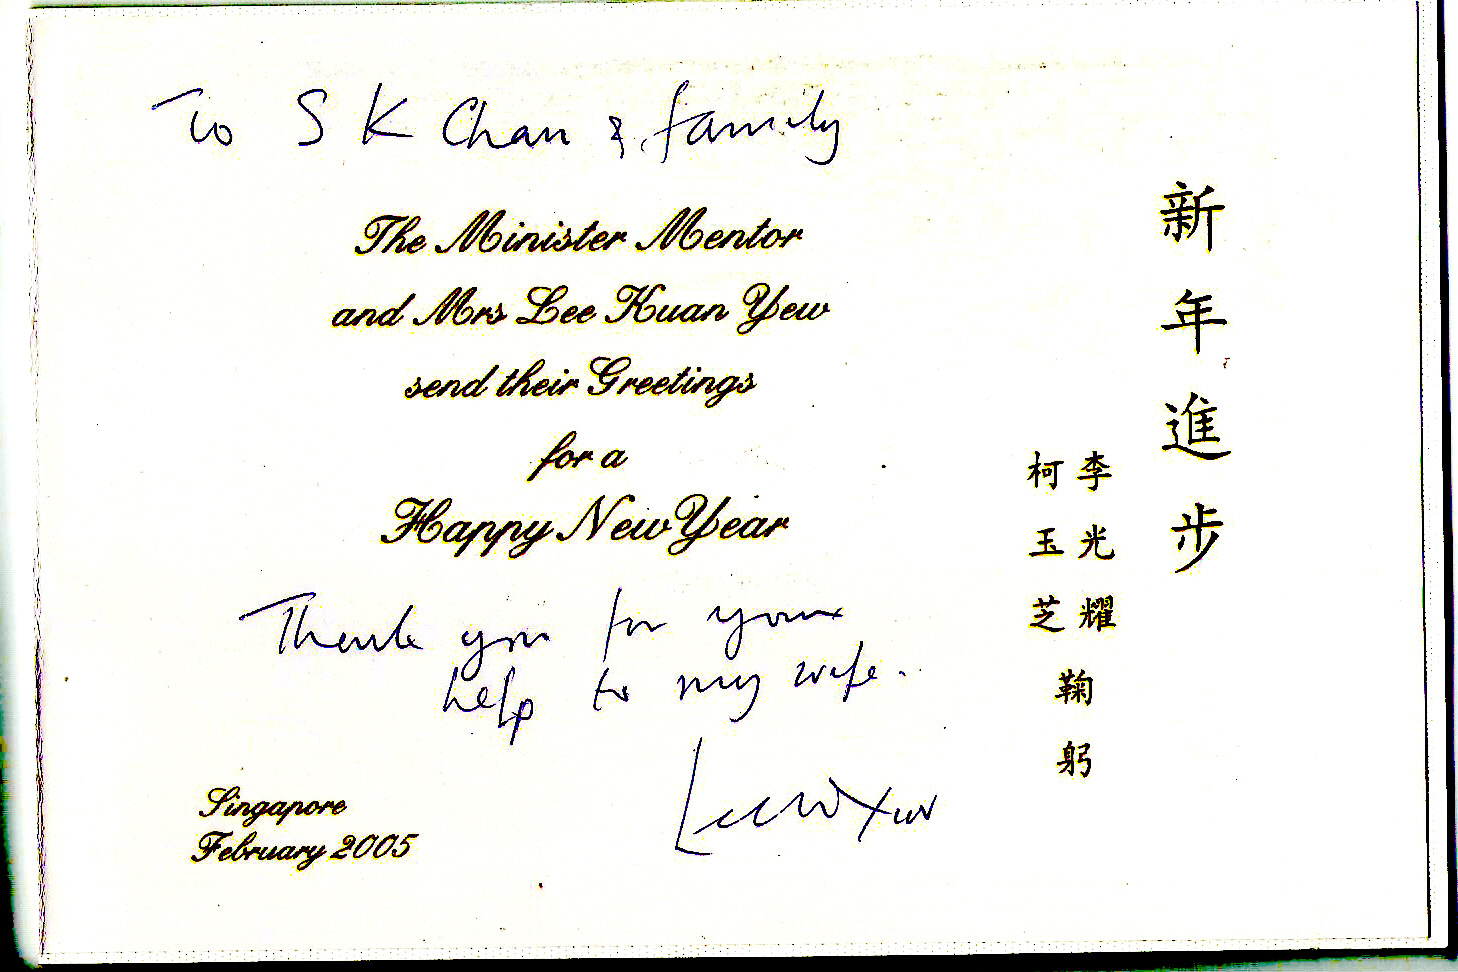 To S K Chan & family
The Minister Mentor
and Mrs Lee Kuan Yew
send their Greetings
for a
Happy New Year
Thank you for your
help to my wife.
Singapore
February 2005
新年進步
李光耀
柯玉芝
鞠躬